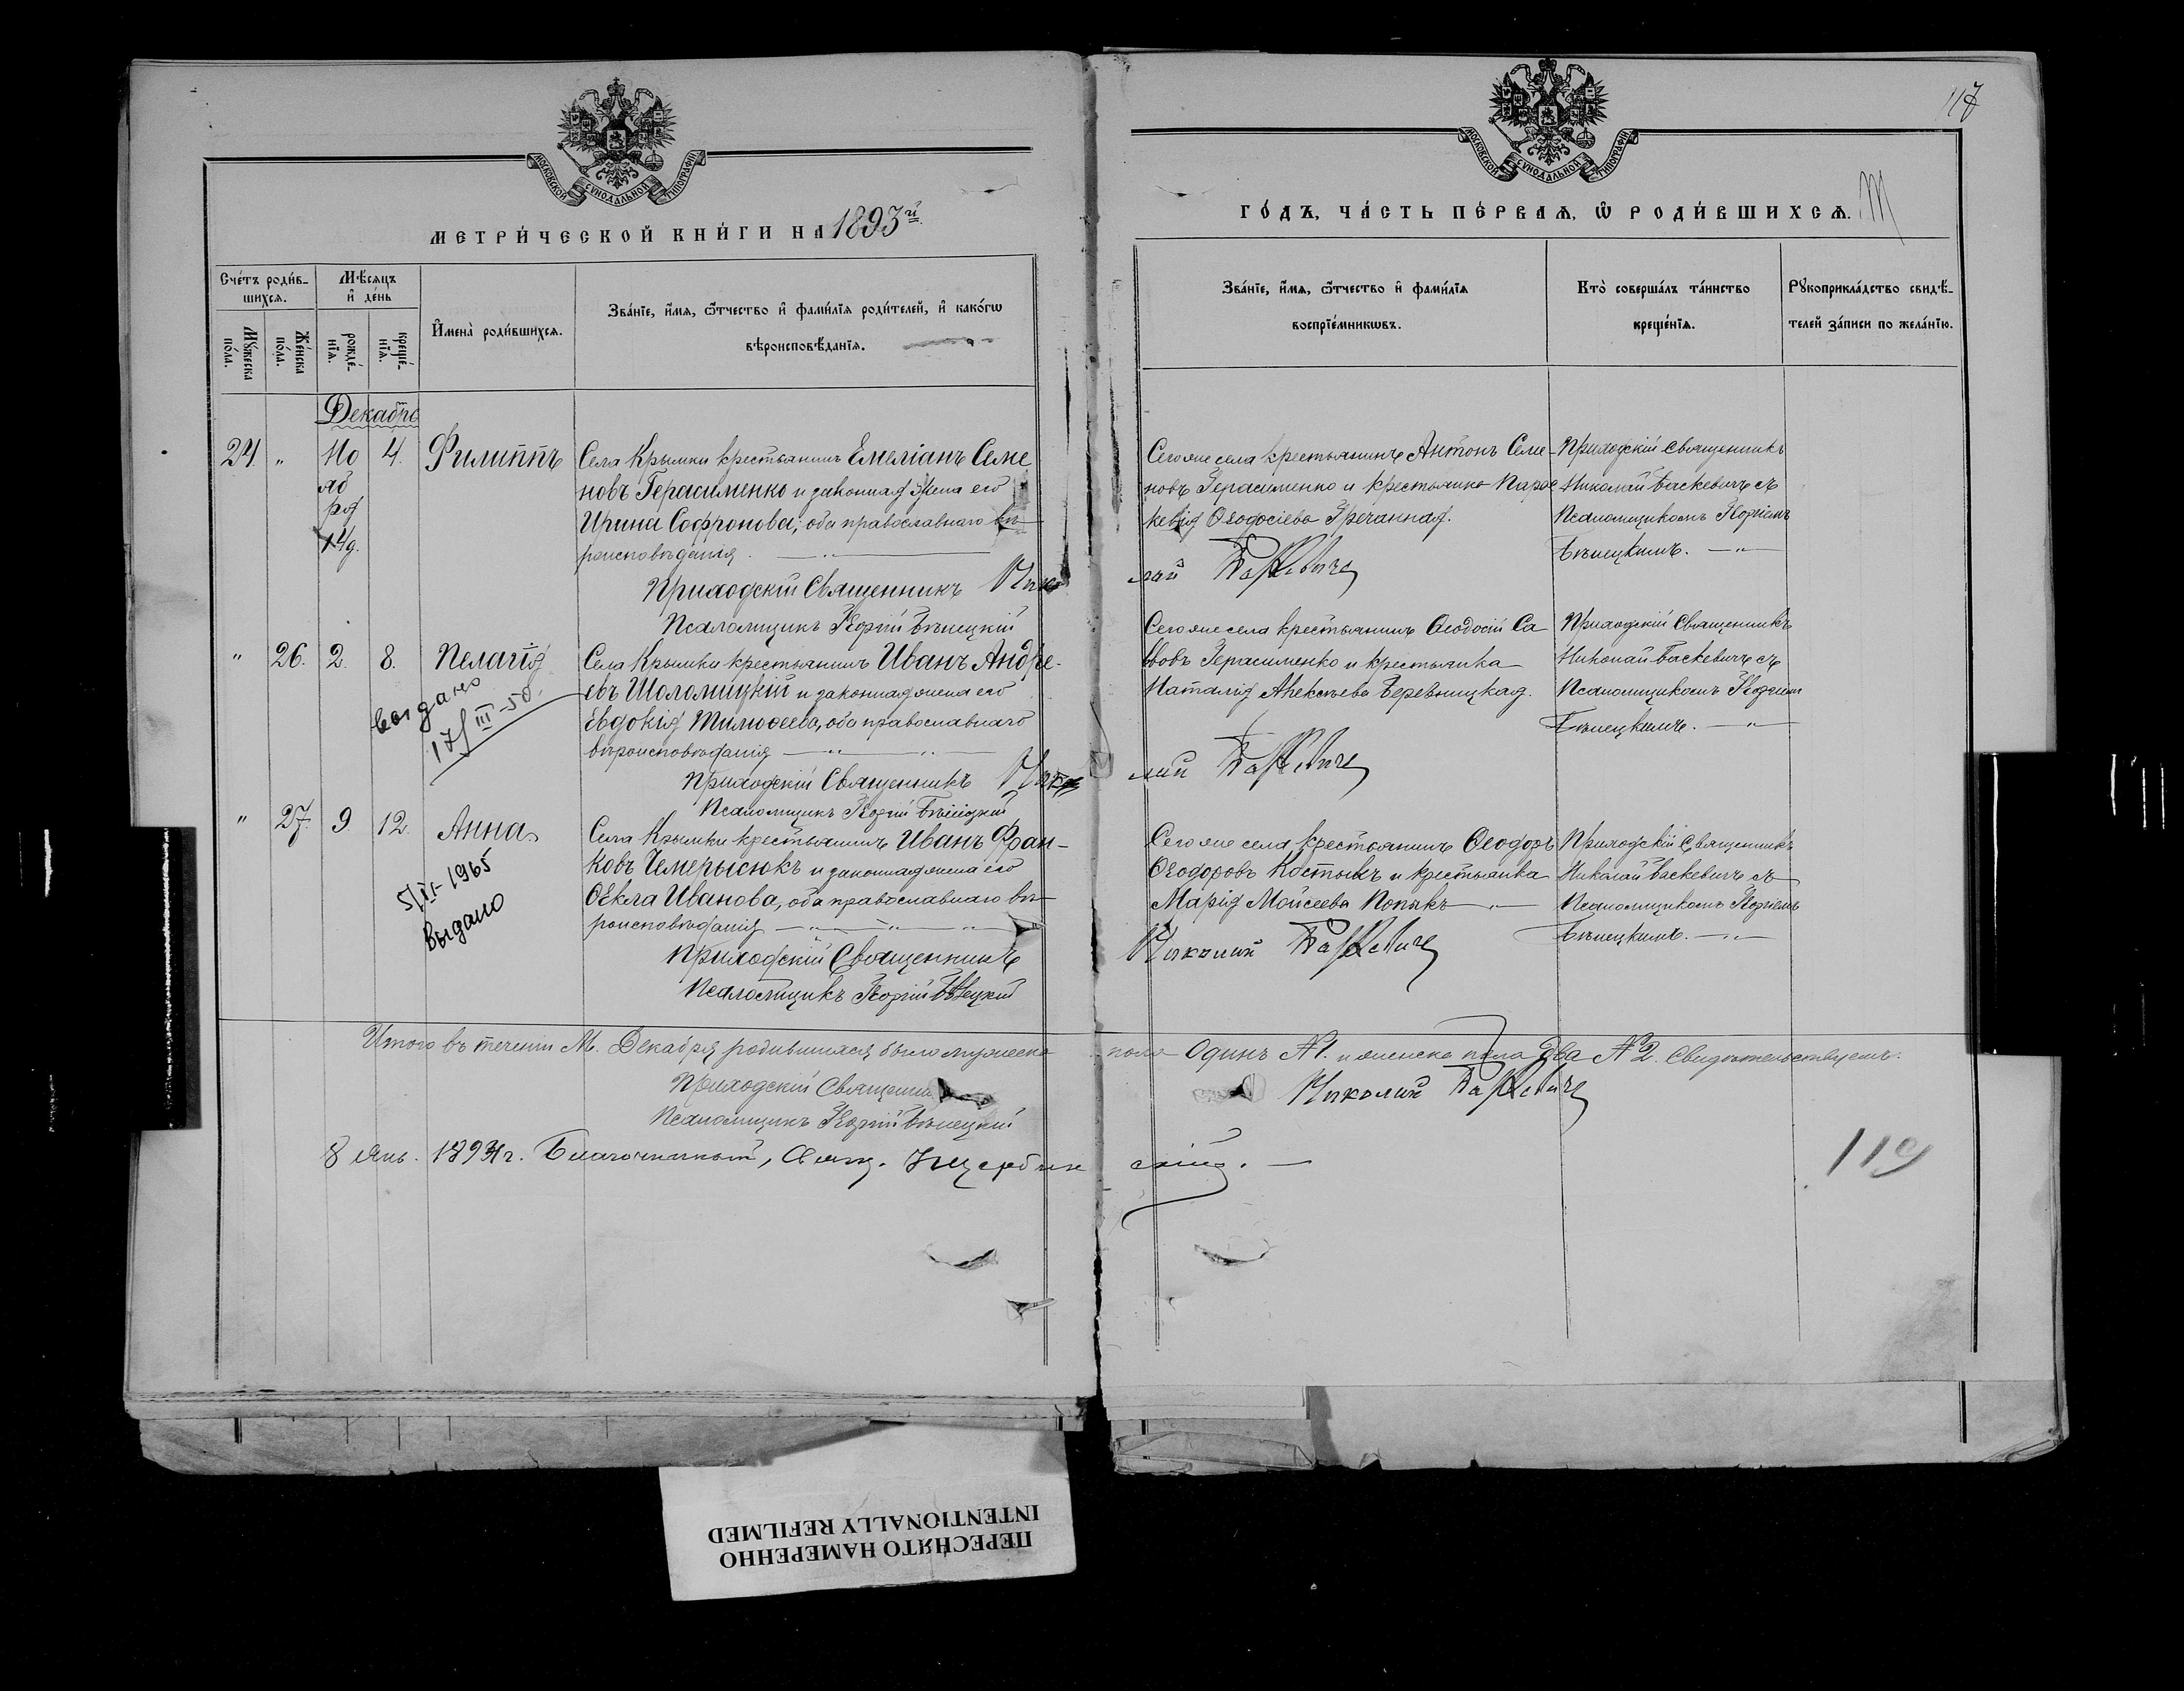 117
МОСКОВСКОЙ СѴНОДАЛЬНОЙ ТИПОГРАФІИ
МОСКОВСКОЙ СѴНОДАЛЬНОЙ ТИПОГРАФІИ
МЕТРИ́ЧЕСКОЙ КНИ́ГИ НА 1893й
ГО́ДЪ, ЧА́СТЬ ПЕ́РВАЯ, Ѿ РОДИ́ВШИХСЯ.
Сче́тъ роди́в-
шихся.
Мѣ́сяцъ
и҆ де́нь
Мꙋ́жеска по́ла.
Же́нска по́ла.
рожде́-нїя.
креще́-нїя.
И҆мена̀ роди́вшихся.
Зва́нїе, и҆́мя, ѻ҆́тчество и҆ фами́лїя роди́телей, и҆ како́гѡ
вѣроисповѣ́данїя.
Зва́нїе, и҆́мя, ѻ҆́тчество и҆ фами́лїя
воспрїе́мникѡвъ.
Кто̀ соверша́лъ та́инство
креще́нїя.
Рꙋкоприкла́дство свидѣ́-
телей за́писи по жела́нїю.
Декабрь
24. " Но 4. Филиппъ
яб
ря
14д.
Села Крымки крестьянинъ Емеліанъ Семе
новъ Герасименко и законная жена его
Ирина Софронова; оба православнаго вѣ-
роисповѣданія.
Приходскій Священникъ Нико
лай Баскевичъ
Псаломщикъ Георгій Бѣнецкій
Сего же села крестьянинъ Антонъ Семе-
новъ Герасименко и крестьянка Парас
кевія Ѳеодосіева Гречанная.
Приходскій Священникъ
Николай Баскевичъ съ
Псаломщикомъ Георгіемъ
Бѣнецкимъ.
" 26. 2. 8. Пелагія
выдано
17/III-50.
Села Крымки крестьянинъ Иванъ Андре-
евъ Шоломицкій и законная жена его
Евдокія Тимоѳеева, оба православнаго
вѣроисповѣданія
Приходскій Священникъ Нико
лай Баскевичъ
Псаломщикъ Георгій Бѣнецкій
Сего же села крестьянинъ Ѳеодосій Са
ввовъ Герасименко и крестьянка
Наталія Алексѣева Беревницкая.
Приходскій Священникъ
Николай Баскевичъ съ
Псаломщикомъ Георгіем
Бѣнецкимъ.
" 27. 9 12. Анна
5/II-1965
Выдано
Села Крымки крестьянинъ Иванъ Фран-
ковъ Чемерысюкъ и законная жена его
Ѳекла Иванова, оба православнаго вѣ-
роисповѣданія
Приходскій Священникъ
Николай Баскевичъ
Псаломщикъ Георгій Бѣнецкій
Сего же села крестьянинъ Ѳеодоръ
Ѳеодоровъ Костывъ и крестьянка
Марія Моисеева Попыкъ
Приходскій Священникъ
Николай Баскевичъ съ
Псаломщикомъ Георгіемъ
Бѣнецкимъ.
Итого въ теченіи М. Декабря родившихся было мужеска пола Одинъ № 1. и женска пола Два № 2. Свидѣтельствуемъ.
Приходскій Священникъ Николай Баскевичъ
Псаломщикъ Георгій Бѣнецкій
8 Янв. 1894 г. Благочинный, Свящ.
ПЕРЕСНЯТО НАМЕРЕННО
INTENTIONALLY REFILMED